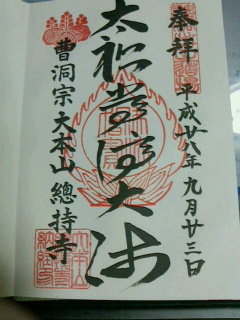 奉拝　平成廿八年九月廿三日
太祖常濟大師
曹洞宗大本山　總持寺